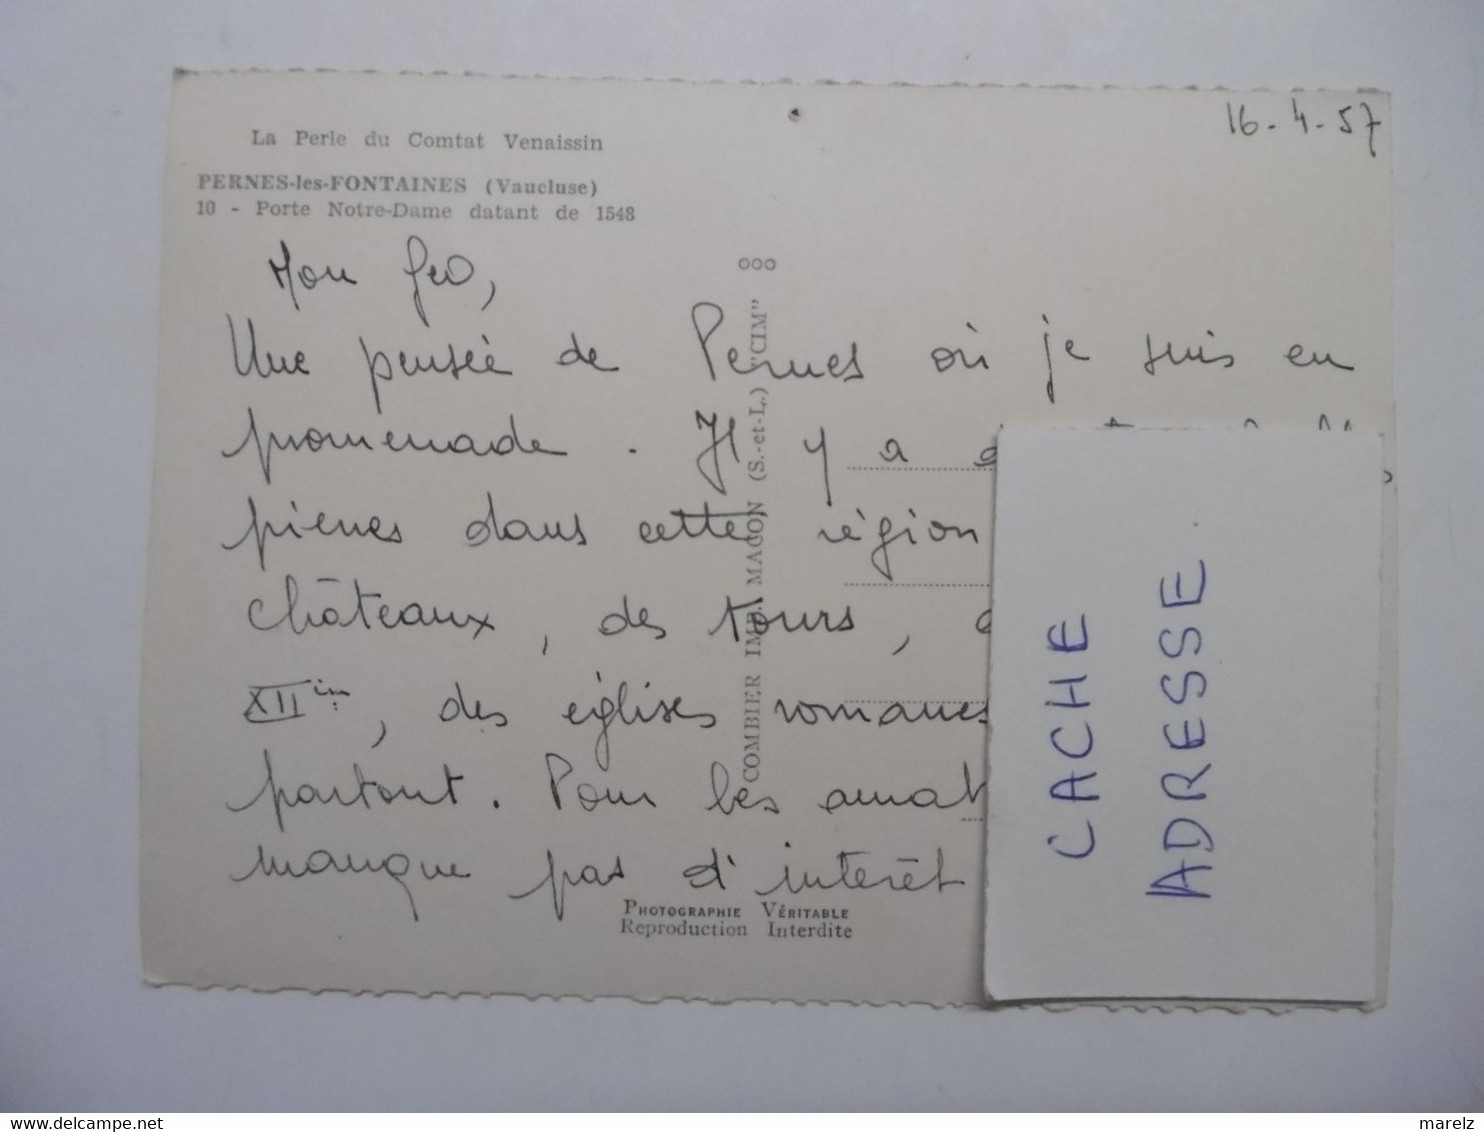 16-4-57
La Perle du Comtat Venaissin
PERNES-les-FONTAINES (Vaucluse)
10 - Porte Notre-Dame datant de 1548
Mon Géo,
Une pensée de Pernes où je suis en
promenade. Il y a
pierres dans cette région
châteaux, des tours,
XII im, des églises romanes
partout. Pour les amat
manque pas d'intérêt
ooo
COMBIER IMP. MACON (S.-et-L.) "CIM"
PHOTOGRAPHIE VÉRITABLE
Reproduction Interdite
CACHE
ADRESSE
www.delcampe.net
marelz